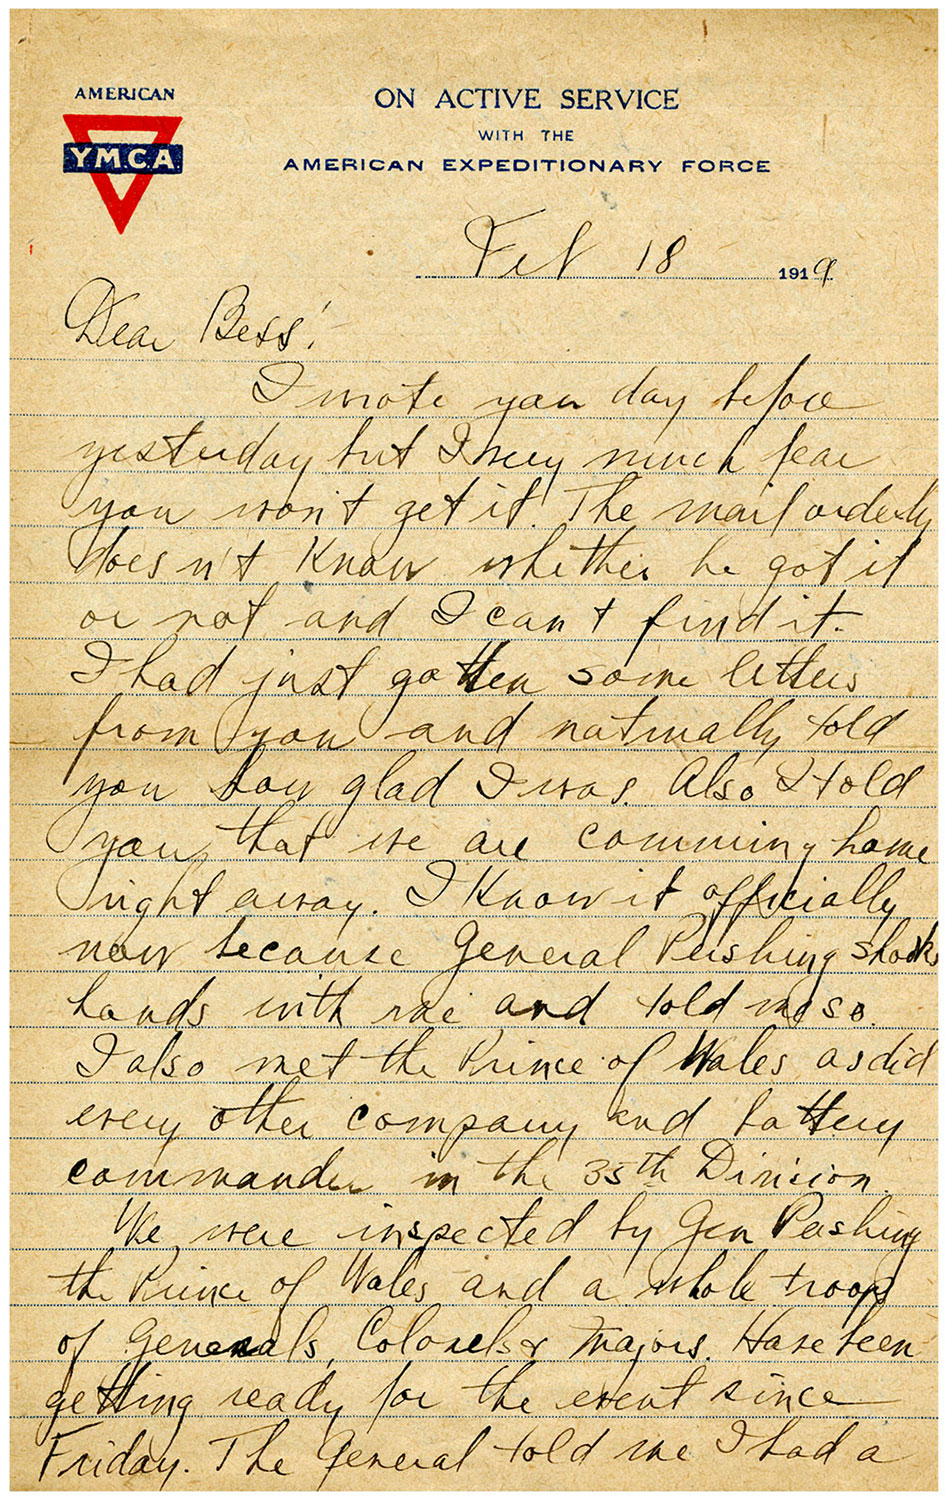 AMERICAN
Y.M.C.A.
ON ACTIVE SERVICE
WITH THE
AMERICAN EXPEDITIONARY FORCE
Feb 18 1919
Dear Bess:
I wrote you day before
yesterday but I very much fear
you won't get it. The mail orderly
does n't know whether he got it
or not and I can't find it.
I had just gotten some letters
from you and naturally told
you how glad I was. Also I told
you that we are comming home
right away. I know it officially
now because General Pershing shook
hands with me and told me so.
I also met the Prince of Wales as did
every other company and battery
commander in the 35th Division.
We were inspected by Gen Pershing
the Prince of Wales and a whole troop
of Generals, Colonels & Majors. Have been
getting ready for the event since
Friday. The General told me I had a